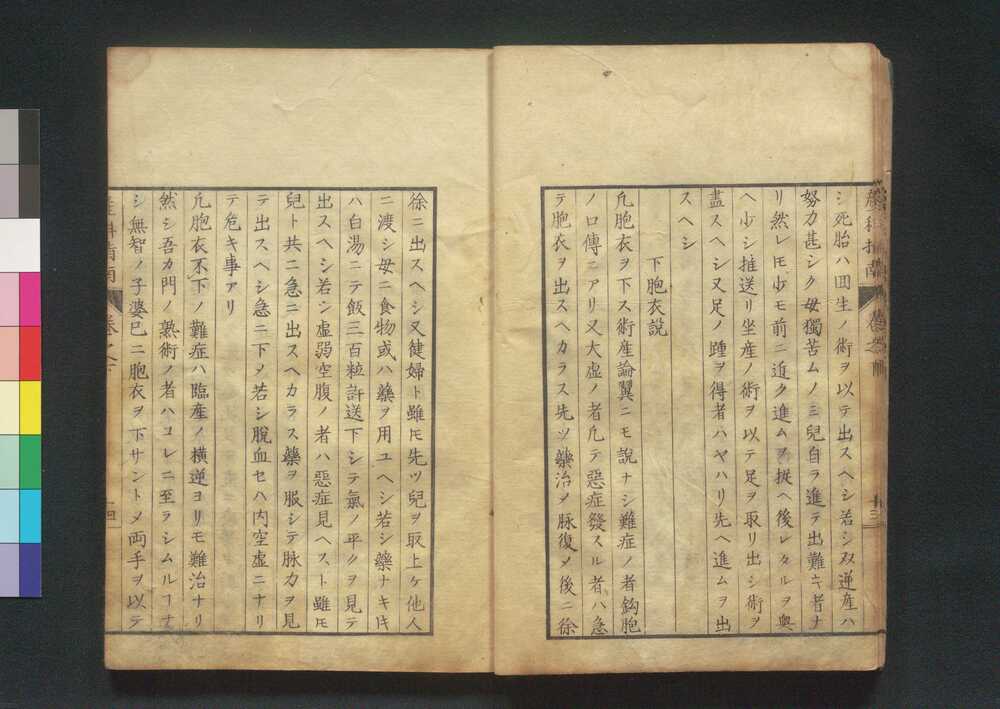 シ死胎ハ回生ノ術ヲ以テ出スヘシ若シ双逆産ハ
努力甚シク母獨苦ムノミ兒自ラ進テ出難キ者ナ
リ然レ𪜈少モ前ニ近ク進ムヲ挨ヘ後レタルヲ奥
ヘ少シ推送リ坐産ノ術ヲ以テ足ヲ取リ出シ術ヲ
盡スヘシ又足ノ踵ヲ得者ハヤハリ先ヘ進ムヲ出
スヘシ
下胞衣説
凡胞衣ヲ下ス術産論翼ニモ説ナシ難症ノ者鈎胞
ノ口傳ニアリ又大虚ノ者凡テ惡症發スル者ハ急
テ胞衣ヲ出スヘカラス先ツ藥治メ脉復メ後ニ徐
十三
徐ニ出スヘシ又健婦ト雖𪜈先ツ兒ヲ取上ケ他人
ニ渡シ母ニ食物或ハ藥ヲ用ユヘシ若シ藥ナキ𪜈
ハ白湯ニテ飯三百粒許送下シテ氣ノ平クヲ見テ
出スヘシ若シ虚弱空腹ノ者ハ惡症見ヘスト雖𪜈
兒ト共ニ急ニ出スヘカラス藥ヲ服シテ脉力ヲ見
テ出スヘシ急ニ下メ若シ脱血セハ内空虚ニナリ
テ危キ事アリ
凡胞衣不下ノ難症ハ臨産ノ横逆ヨリモ難治ナリ
然シ吾カ門ノ熟術ノ者ハコレニ至ラシムルヿナ
シ無智ノ子婆已ニ胞衣ヲ下サントメ両手ヲ以テ
十四